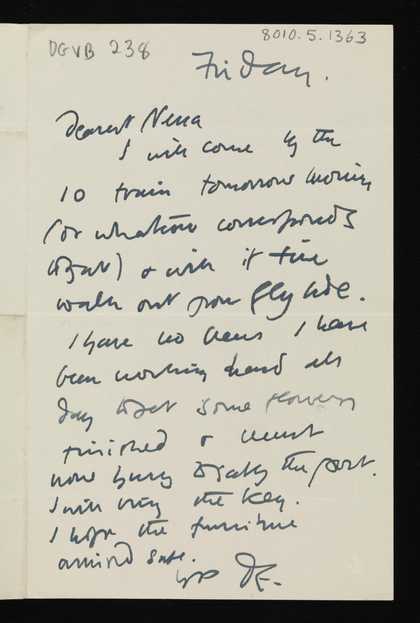 DGVB 238
8010.5.1363
Friday.
Dearest Nessa
I will come by the
10 train tomorrow morning
(or whatever corresponds
to that) & will if fine
walk out from Glynde.
I have no news I have
been working hard all
day to get some flowers
finished & must
now hurry to catch the post.
I will bring the key.
I hope the furniture
arrived safe.
yr DG.